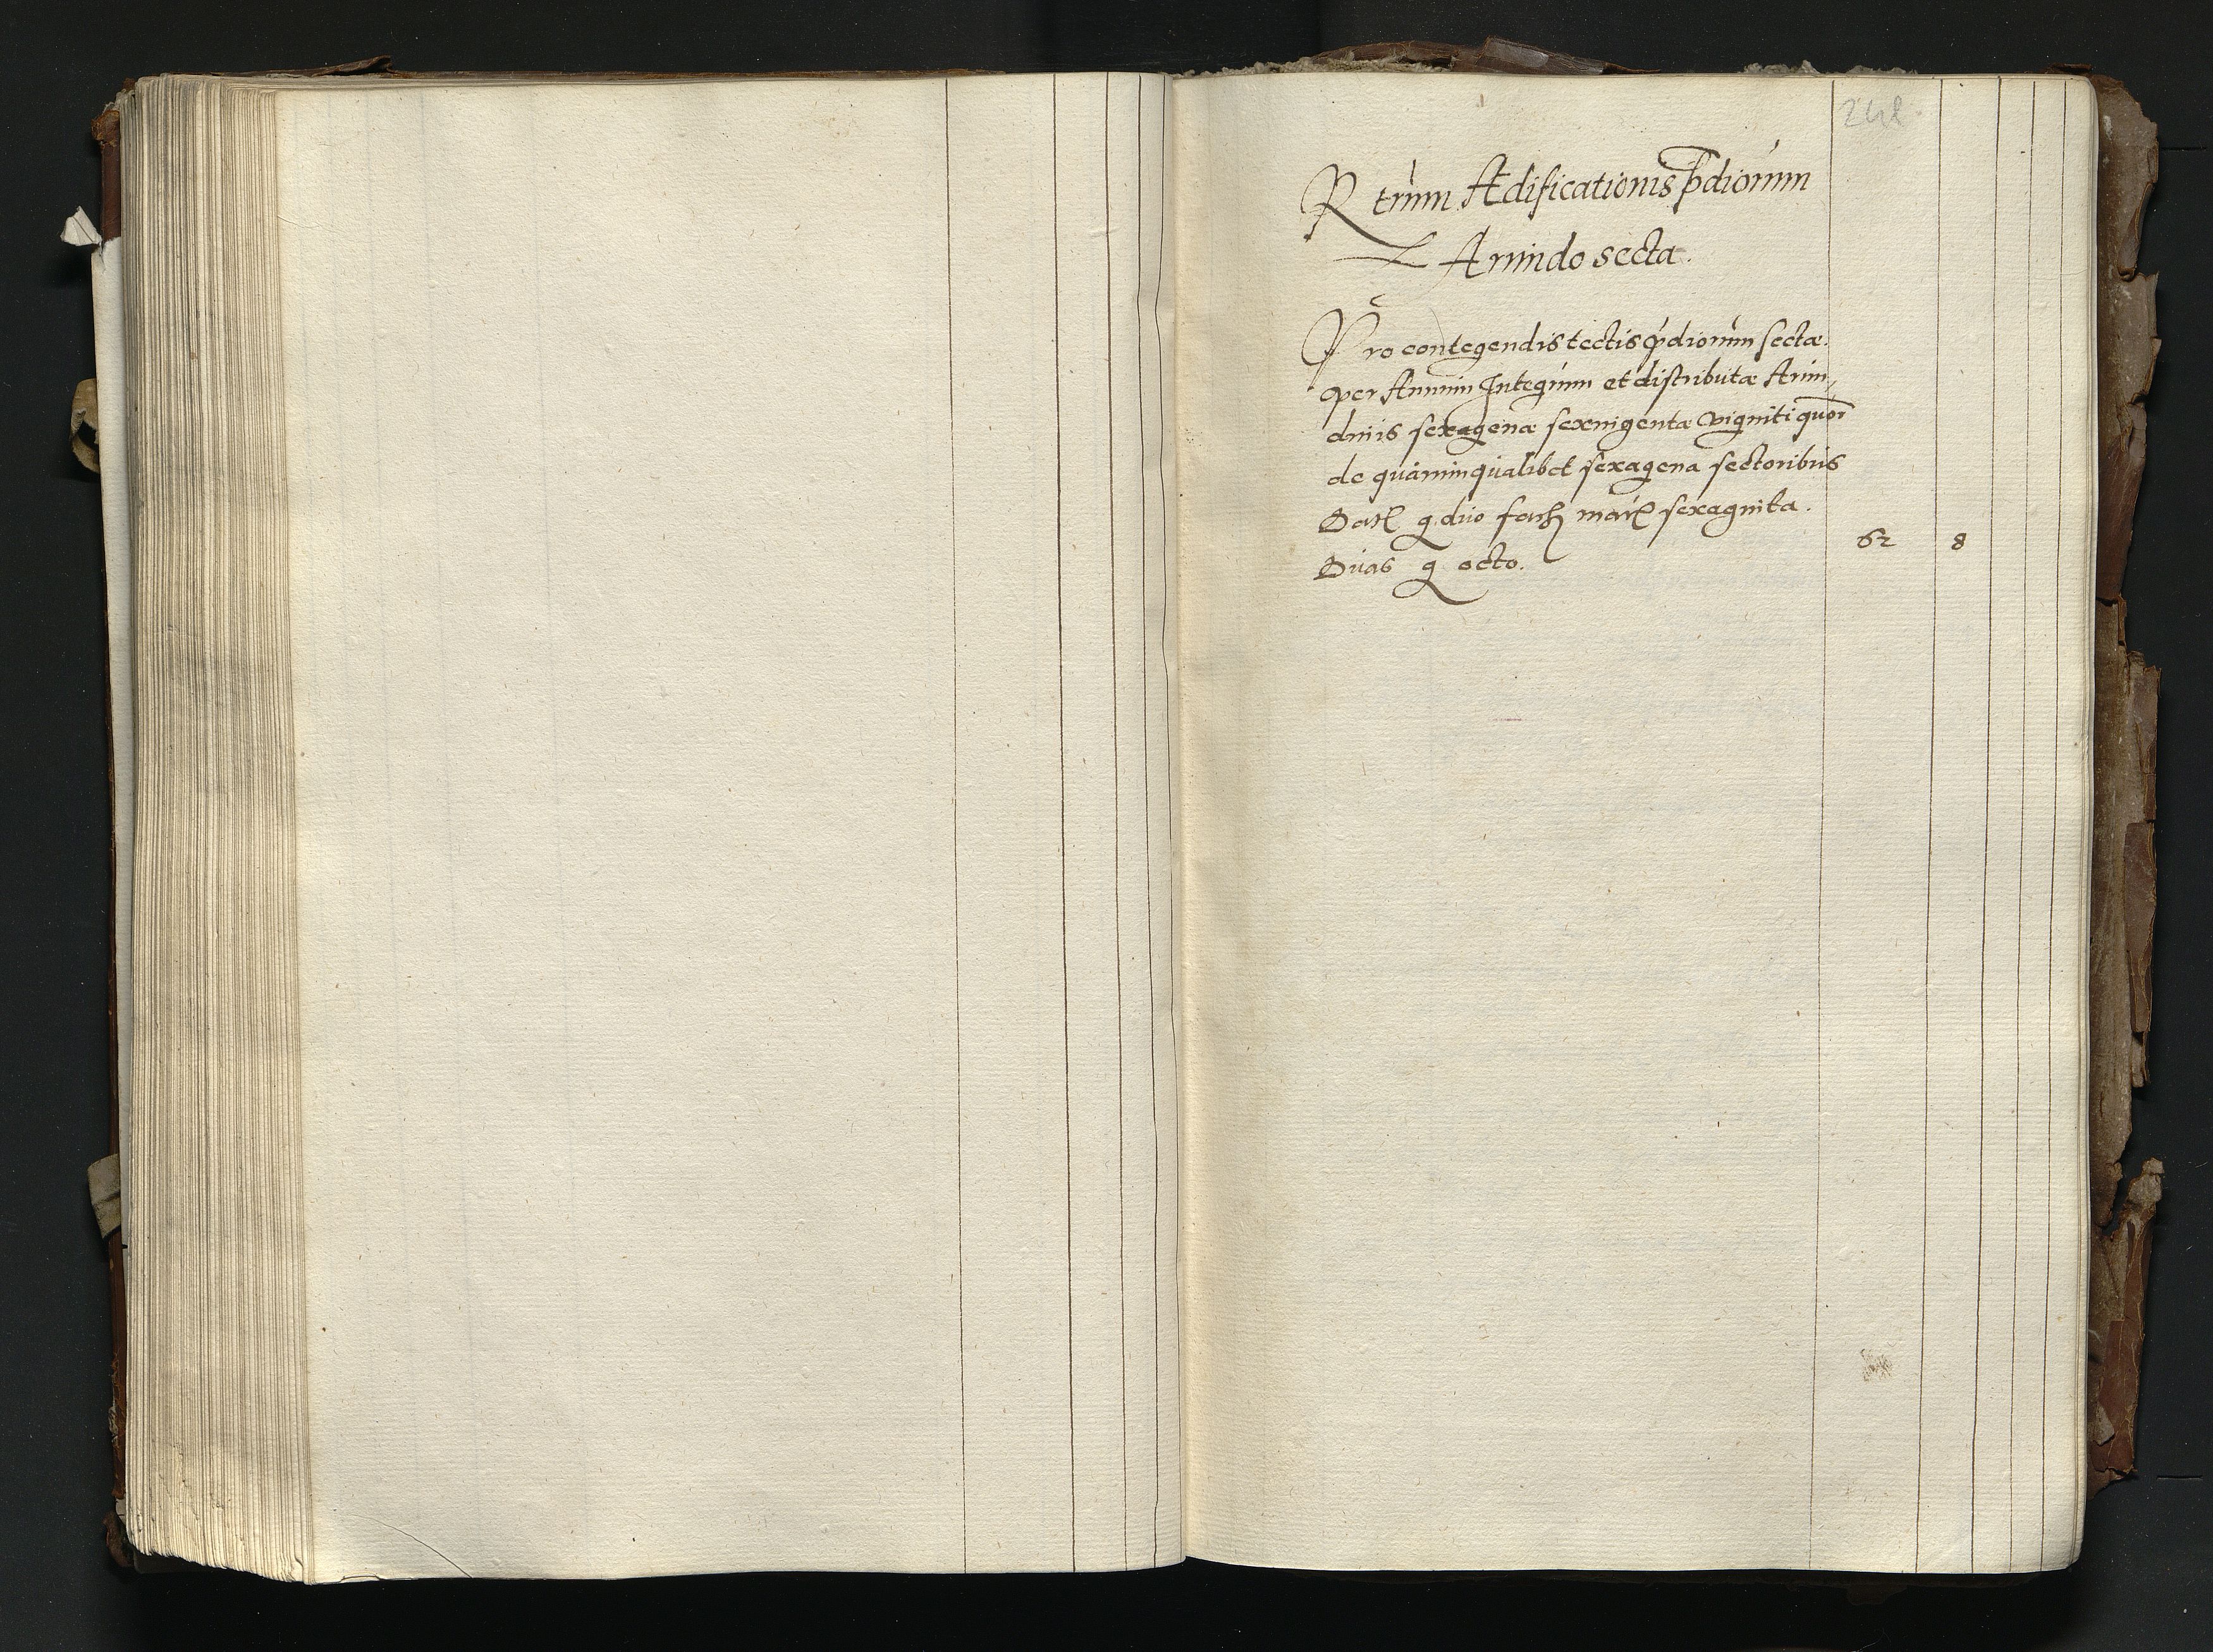 248.
Rerum Ædificationis p̄diorum
Arundo secta.
Pro contegendis tectis p̄diorum sectæ.
per Annum Integrum et distributæ Arun,
dinis sexagenæ sexingentæ viginti quor̄
de quarum qualibet sexagena sectoribus
Dat g. duo facit marc sexaginta.
Duas g octo.
62 8